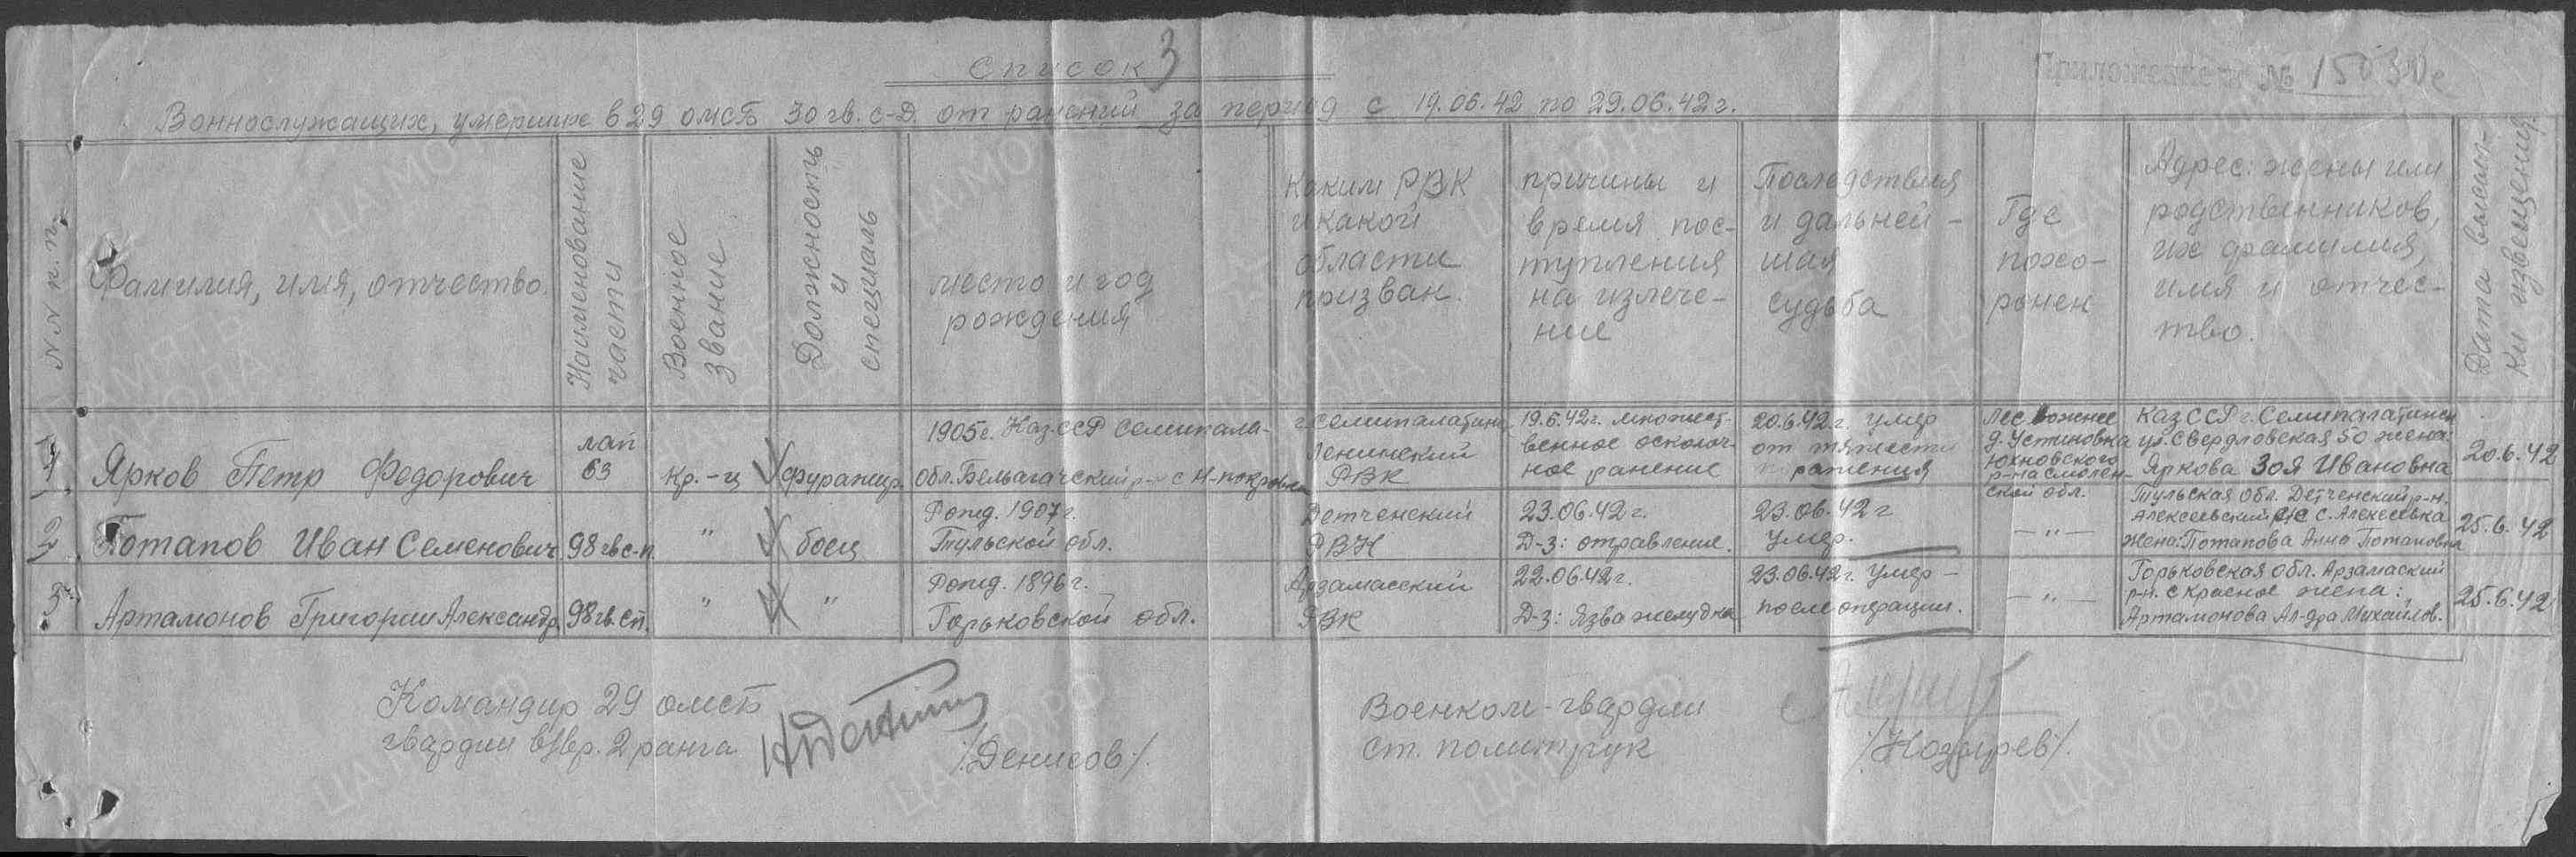 Список 3
Приложение к № 15030с
Военнослужащих, умерших в 29 омсб 30 гв. с-д. от ранений за период с 19.06.42 по 29.06.42 г.
N N п. п.
Фамилия, имя, отчество.
Наименование
части
Военное
звание
Должность
и
специаль
место и год
рождения
Каким РВК
и какой
области
призван.
причины и
время пос-
тупления
на излече-
ние
Последствия
и дальней-
шая
судьба
Где
похо-
ронен
Адрес: жены или
родственников,
их фамилия,
имя и отчес-
тво.
Дата высыл-
ки извещения.
1
Ярков Петр Федорович
лап
63
Кр.-ц
Фуражир.
1905г. Каз.ССР Семипала-
обл. Бельагачский р-н с Н-покровка
г. Семипалатинск
Ленинский
РВК
19.6.42г. множест-
венное осколоч-
ное ранение
20.6.42г. умер
от тяжести
ранения
Лес южнее
д. Устиновка
Юхновского
р-на Смолен-
ской обл.
Каз ССР г. Семипалатинск
ул. Свердловская 50 жена:
Яркова Зоя Ивановна
20.6.42
2
Потапов Иван Семенович
98 гв с-п.
"
боец
Рожд. 1907г.
Тульской обл.
Детченский
РВК
23.06.42 г.
Д-з: отравление.
23.06.42 г
умер.
— " —
Тульская обл. Детченский р-н.
Алексеевский с/с с. Алексеевка
жена: Потапова Анна Потаповна
25.6.42
3
Артамонов Григории Александр.
98 гв. сп.
"
"
Рожд. 1896г.
Горьковской обл.
Арзамасский
РВК
22.06.42г.
Д-з: Язва желудка
23.06.42г. умер -
после операции.
— " —
Горьковская обл. Арзамаский
р-н. с Красное жена:
Артамонова Ал-дра Михайлов.
25.6.42
Командир 29 омсб
гвардии в/вр. 2 ранга
/Денисов/.
Военком - гвардии
ст. политрук
/Нозырев/.
ЦАМО РФ